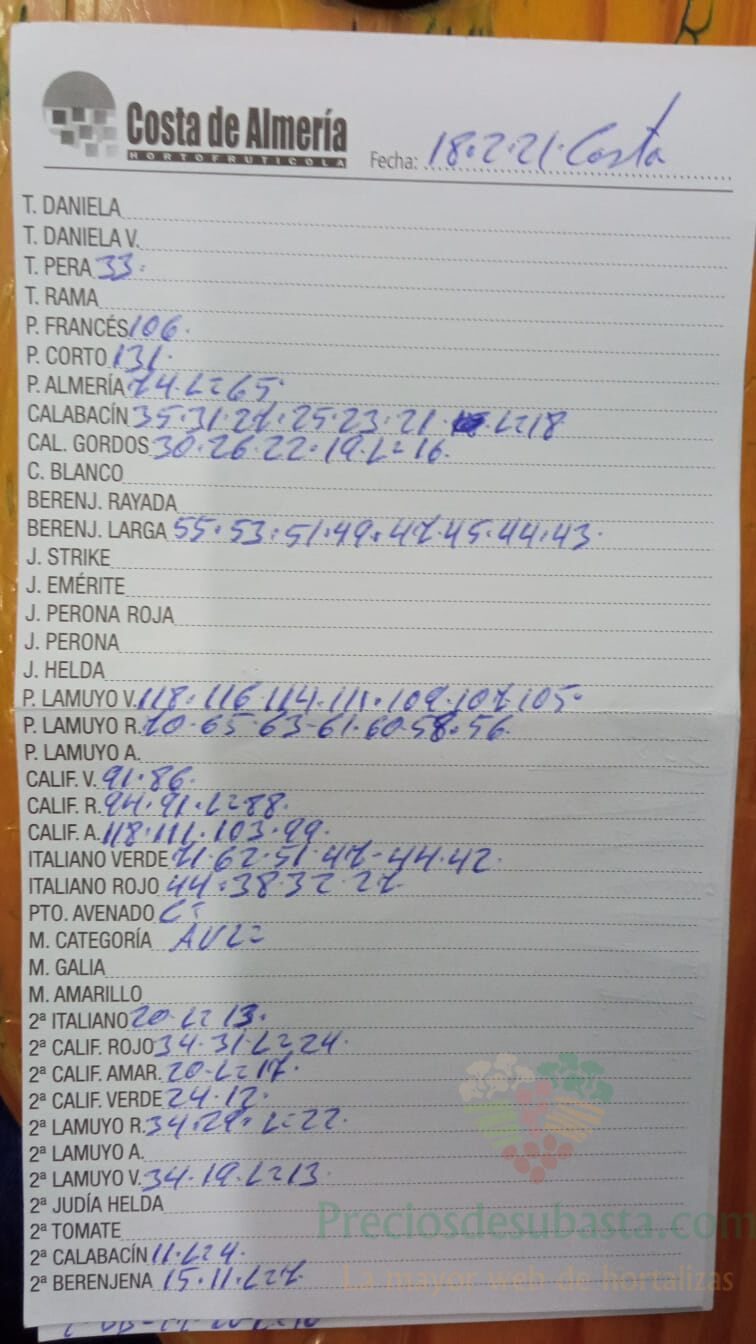 Costa de Almería
HORTOFRUTICOLA
Fecha: 18.2.21. Costa
T. DANIELA
T. DANIELA V.
T. PERA 33.
T. RAMA
P. FRANCÉS 106.
P. CORTO 131.
P. ALMERÍA 74. L= 65.
CALABACÍN 35.31.27.25.23.21. L=18
CAL. GORDOS 30.26.22.19.L=16.
C. BLANCO
BERENJ. RAYADA
BERENJ. LARGA 55.53.51.49.47.45.44.43.
J. STRIKE
J. EMÉRITE
J. PERONA ROJA
J. PERONA
J. HELDA
P. LAMUYO V. 118.116.114.111.109.107.105.
P. LAMUYO R. 70-65-63-61.60-58.56.
P. LAMUYO A.
CALIF. V. 91.86.
CALIF. R. 94.91.L=88.
CALIF. A. 118.111.103.99.
ITALIANO VERDE 71.62.51.47-44.42.
ITALIANO ROJO 44.38.32.27
PTO. AVENADO
M. CATEGORÍA
M. GALIA
M. AMARILLO
2ª ITALIANO 20.L=13.
2ª CALIF. ROJO 34.31.L=24.
2ª CALIF. AMAR. 20-L=17.
2ª CALIF. VERDE 24.12.
2ª LAMUYO R. 34.29. L=22.
2ª LAMUYO A.
2ª LAMUYO V. 34.19.L=13
2ª JUDÍA HELDA
2ª TOMATE
2ª CALABACÍN 11.L=4.
2ª BERENJENA 15.11.L=7
Preciosdesubasta.com
La mayor web de hortalizas